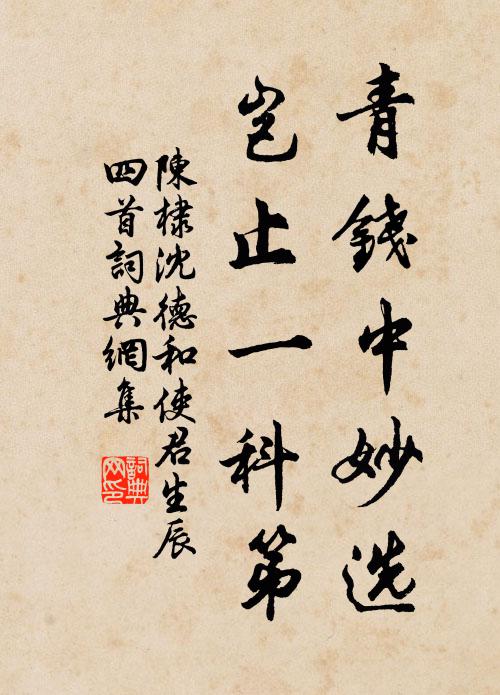 青錢中妙选
岂止一科第
陳棣沈德和使君生辰
四首詞典網集
詞典网印